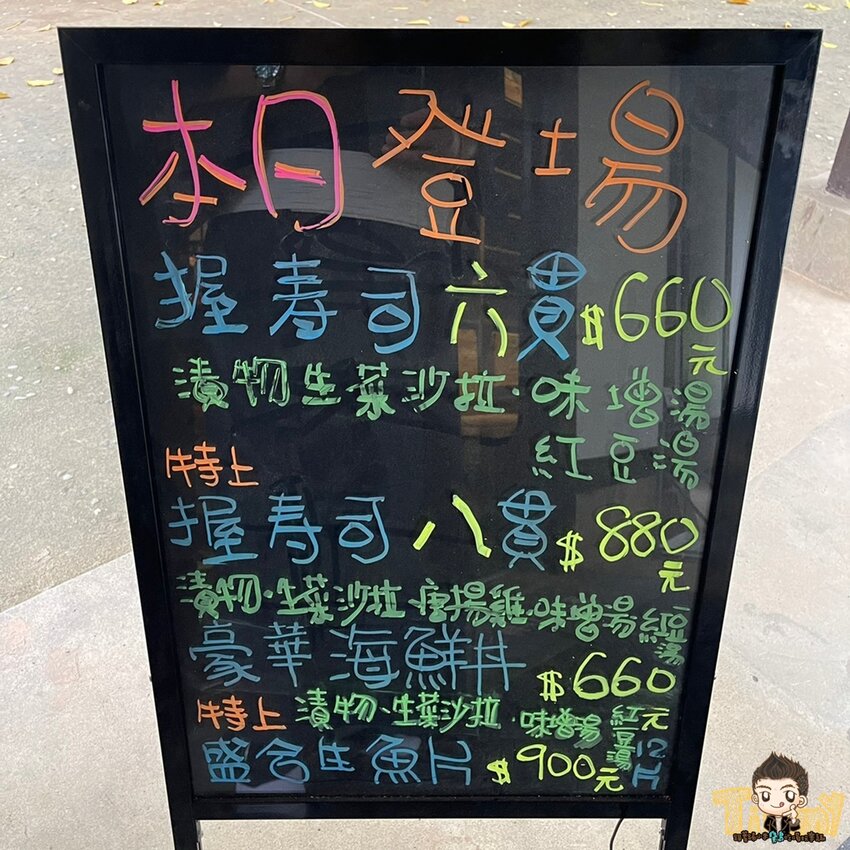 本月登場
握寿司六貫$660元
漬物生菜沙拉·味增湯
紅豆湯
特上
握寿司八貫$880元
漬物·生菜沙拉·唐揚雞·味增湯紅豆湯
豪華海鮮丼$660元
特上漬物·生菜沙拉·味增湯紅豆湯
盛合生魚片$900元12片